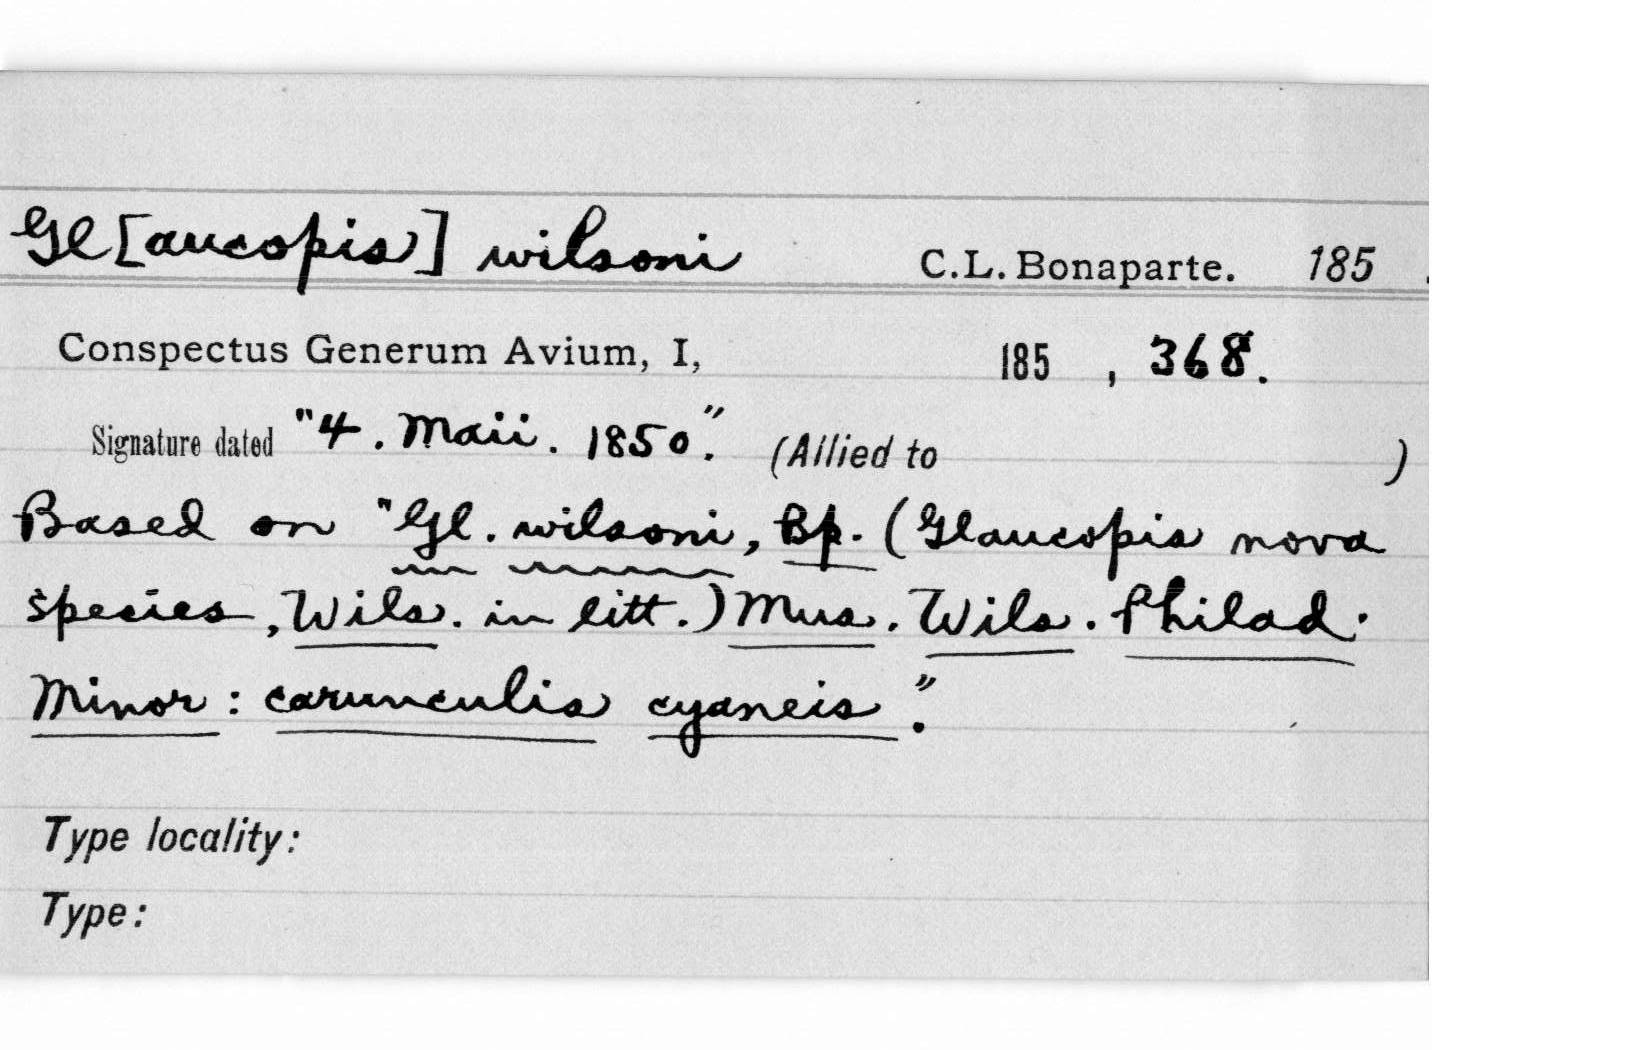 Gl[aucopis] wilsoni C.L. Bonaparte. 185 .
Conspectus Generum Avium, I, 185 , 368.
Signature dated "4. Maii. 1850". (Allied to )
Based on "Gl. wilsoni, Bp. (Glaucopis nova
species, Wils. in litt.) Mus. Wils. Philad.
Minor: carunculis cyaneis."
Type locality:
Type: